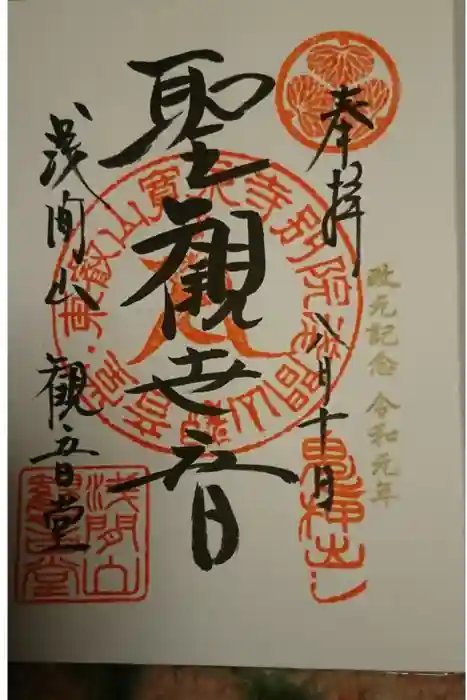 奉拝
八月十日
改元記念 令和元年
聖観世音
浅間山 観音堂
東叡山寛永寺別院浅間山
浅間山
観音堂